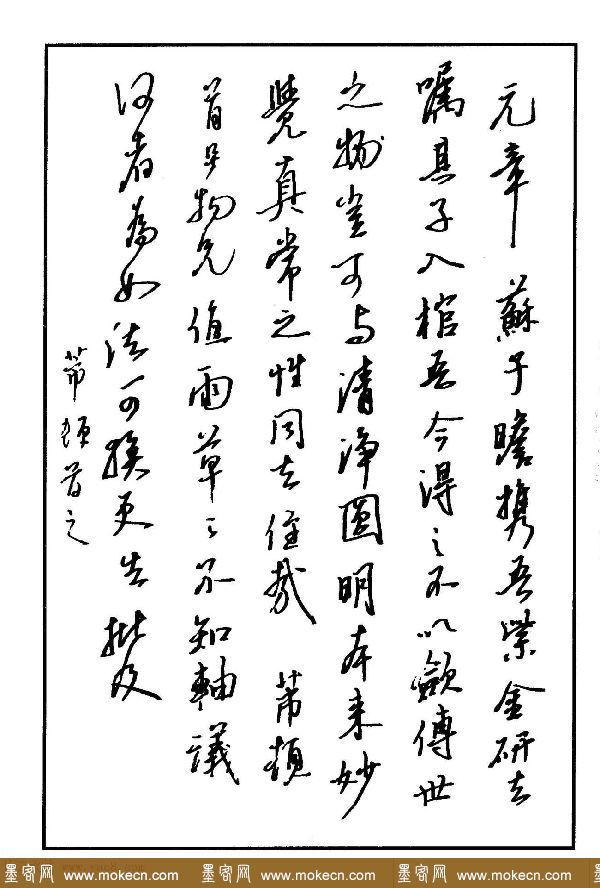 元章 蘇子瞻携吾紫金研去
嘱其子入棺吾今得之不以歛傳世
之物豈可与清淨圓明本来妙
覺真常之性同去住哉 芾頓
首
物兄值雨草々不知軸議
何者為如法可換更告批及
芾頓首之
墨客网 www.mokecn.com 墨客网 www.mokecn.com 墨客网 www.mokecn.com